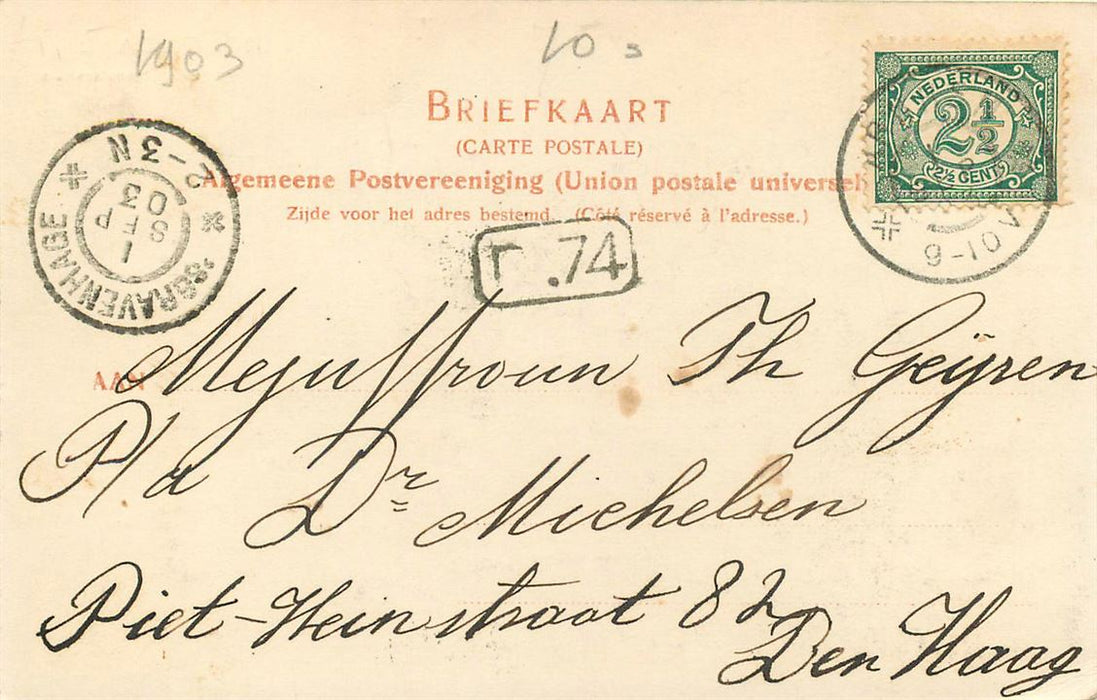 1903
10 3
BRIEFKAART
(CARTE POSTALE)
Algemeene Postvereeniging (Union postale universel
Zijde voor het adres bestemd. (Côté réservé à l'adresse.)
NEDERLAND
2 1/2
2½ CENT
9-10V
'SGRAVENHAGE
1
SEP
03
2-3N
.74
AAN Mejuffroun Th Geijsen
P/a Dr Michelsen
Piet-Heinstraat 82
Den Haag